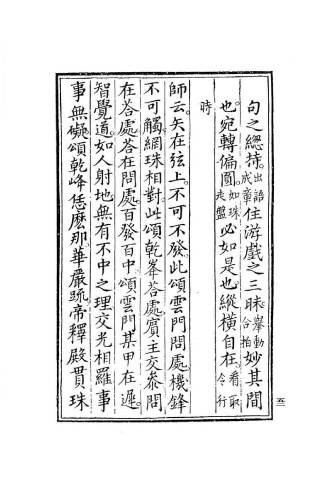 句之緫持。出語成章住游戲之三昧。舉動合拍妙其間
也。宛轉偏圓。如珠走盤必如是也。縱橫自在。看取令行
時
師云。矢在弦上。不可不發。此頌雲門問處。機鋒
不可觸。網珠相對。此頌乾峯荅處。賓主交參。問
在荅處。荅在問處。百發百中。頌雲門某甲在遲。
智覺道。如人射地。無有不中之理。交光相羅。事
事無礙。頌乾峰恁麽那。華嚴疏。帝釋殿貫珠
五二